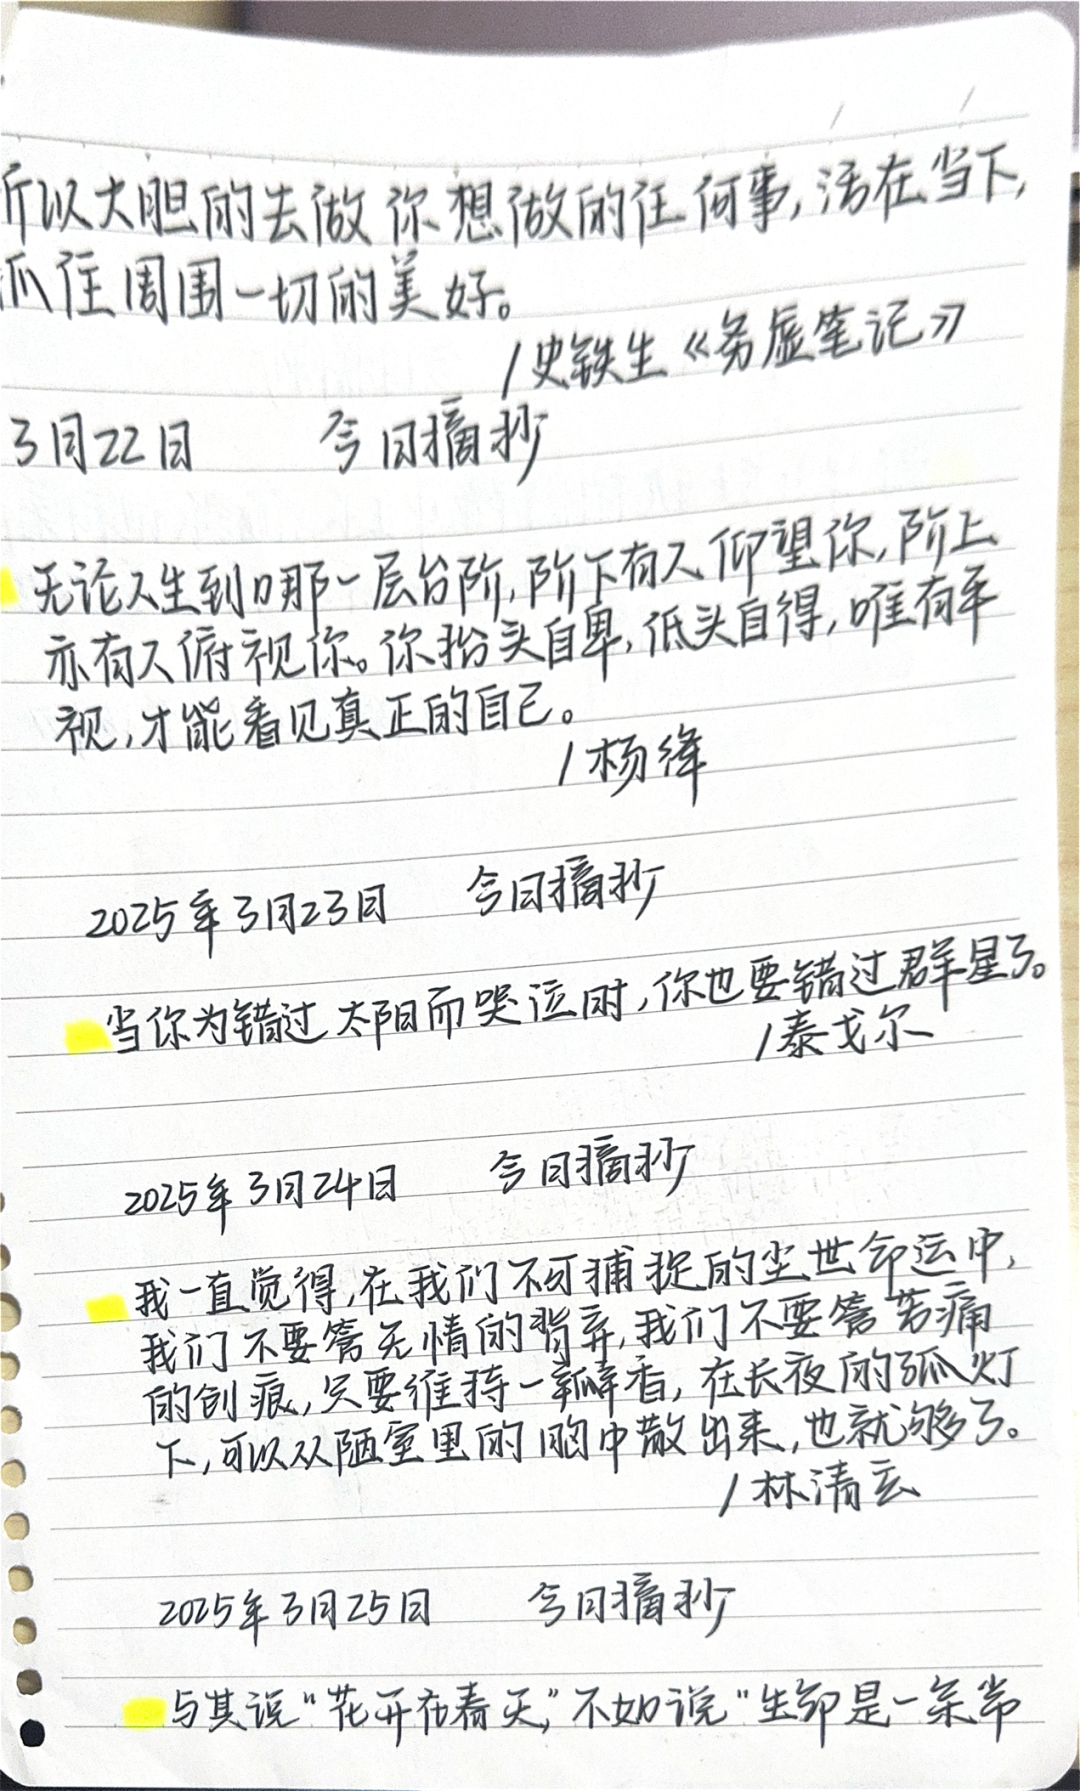 所以大胆的去做你想做的任何事,活在当下,
抓住周围一切的美好。
/史铁生《务虚笔记》
3月22日 今日摘抄
无论人生到哪一层台阶,阶下有人仰望你,阶上
亦有人俯视你。你抬头自卑,低头自得,唯有平
视,才能看见真正的自己。
/杨绛
2025年3月23日 今日摘抄
当你为错过太阳而哭泣时,你也要错过群星了。
/泰戈尔
2025年3月24日 今日摘抄
我一直觉得,在我们不可捕捉的尘世命运中,
我们不要管无情的背弃,我们不要管苦痛
的创痕,只要维持一瓣香,在长夜的孤灯
下,可以从陋室里的胸中散出来,也就够了。
/林清玄
2025年3月25日 今日摘抄
与其说“花开在春天,”不如说“生命是一条常